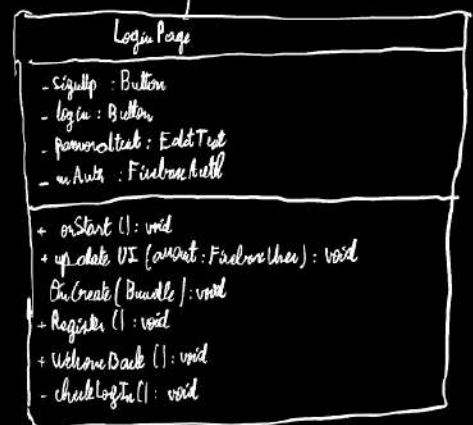 Login Page
- signUp : Button
- login : Button
- passwordtext : EditText
- mAuth : FirebaseAuth
+ onStart () : void
+ update UI (account : FirebaseUser) : void
OnCreate (Bundle) : void
+ Register () : void
+ WelcomeBack () : void
- checkLogIn () : void